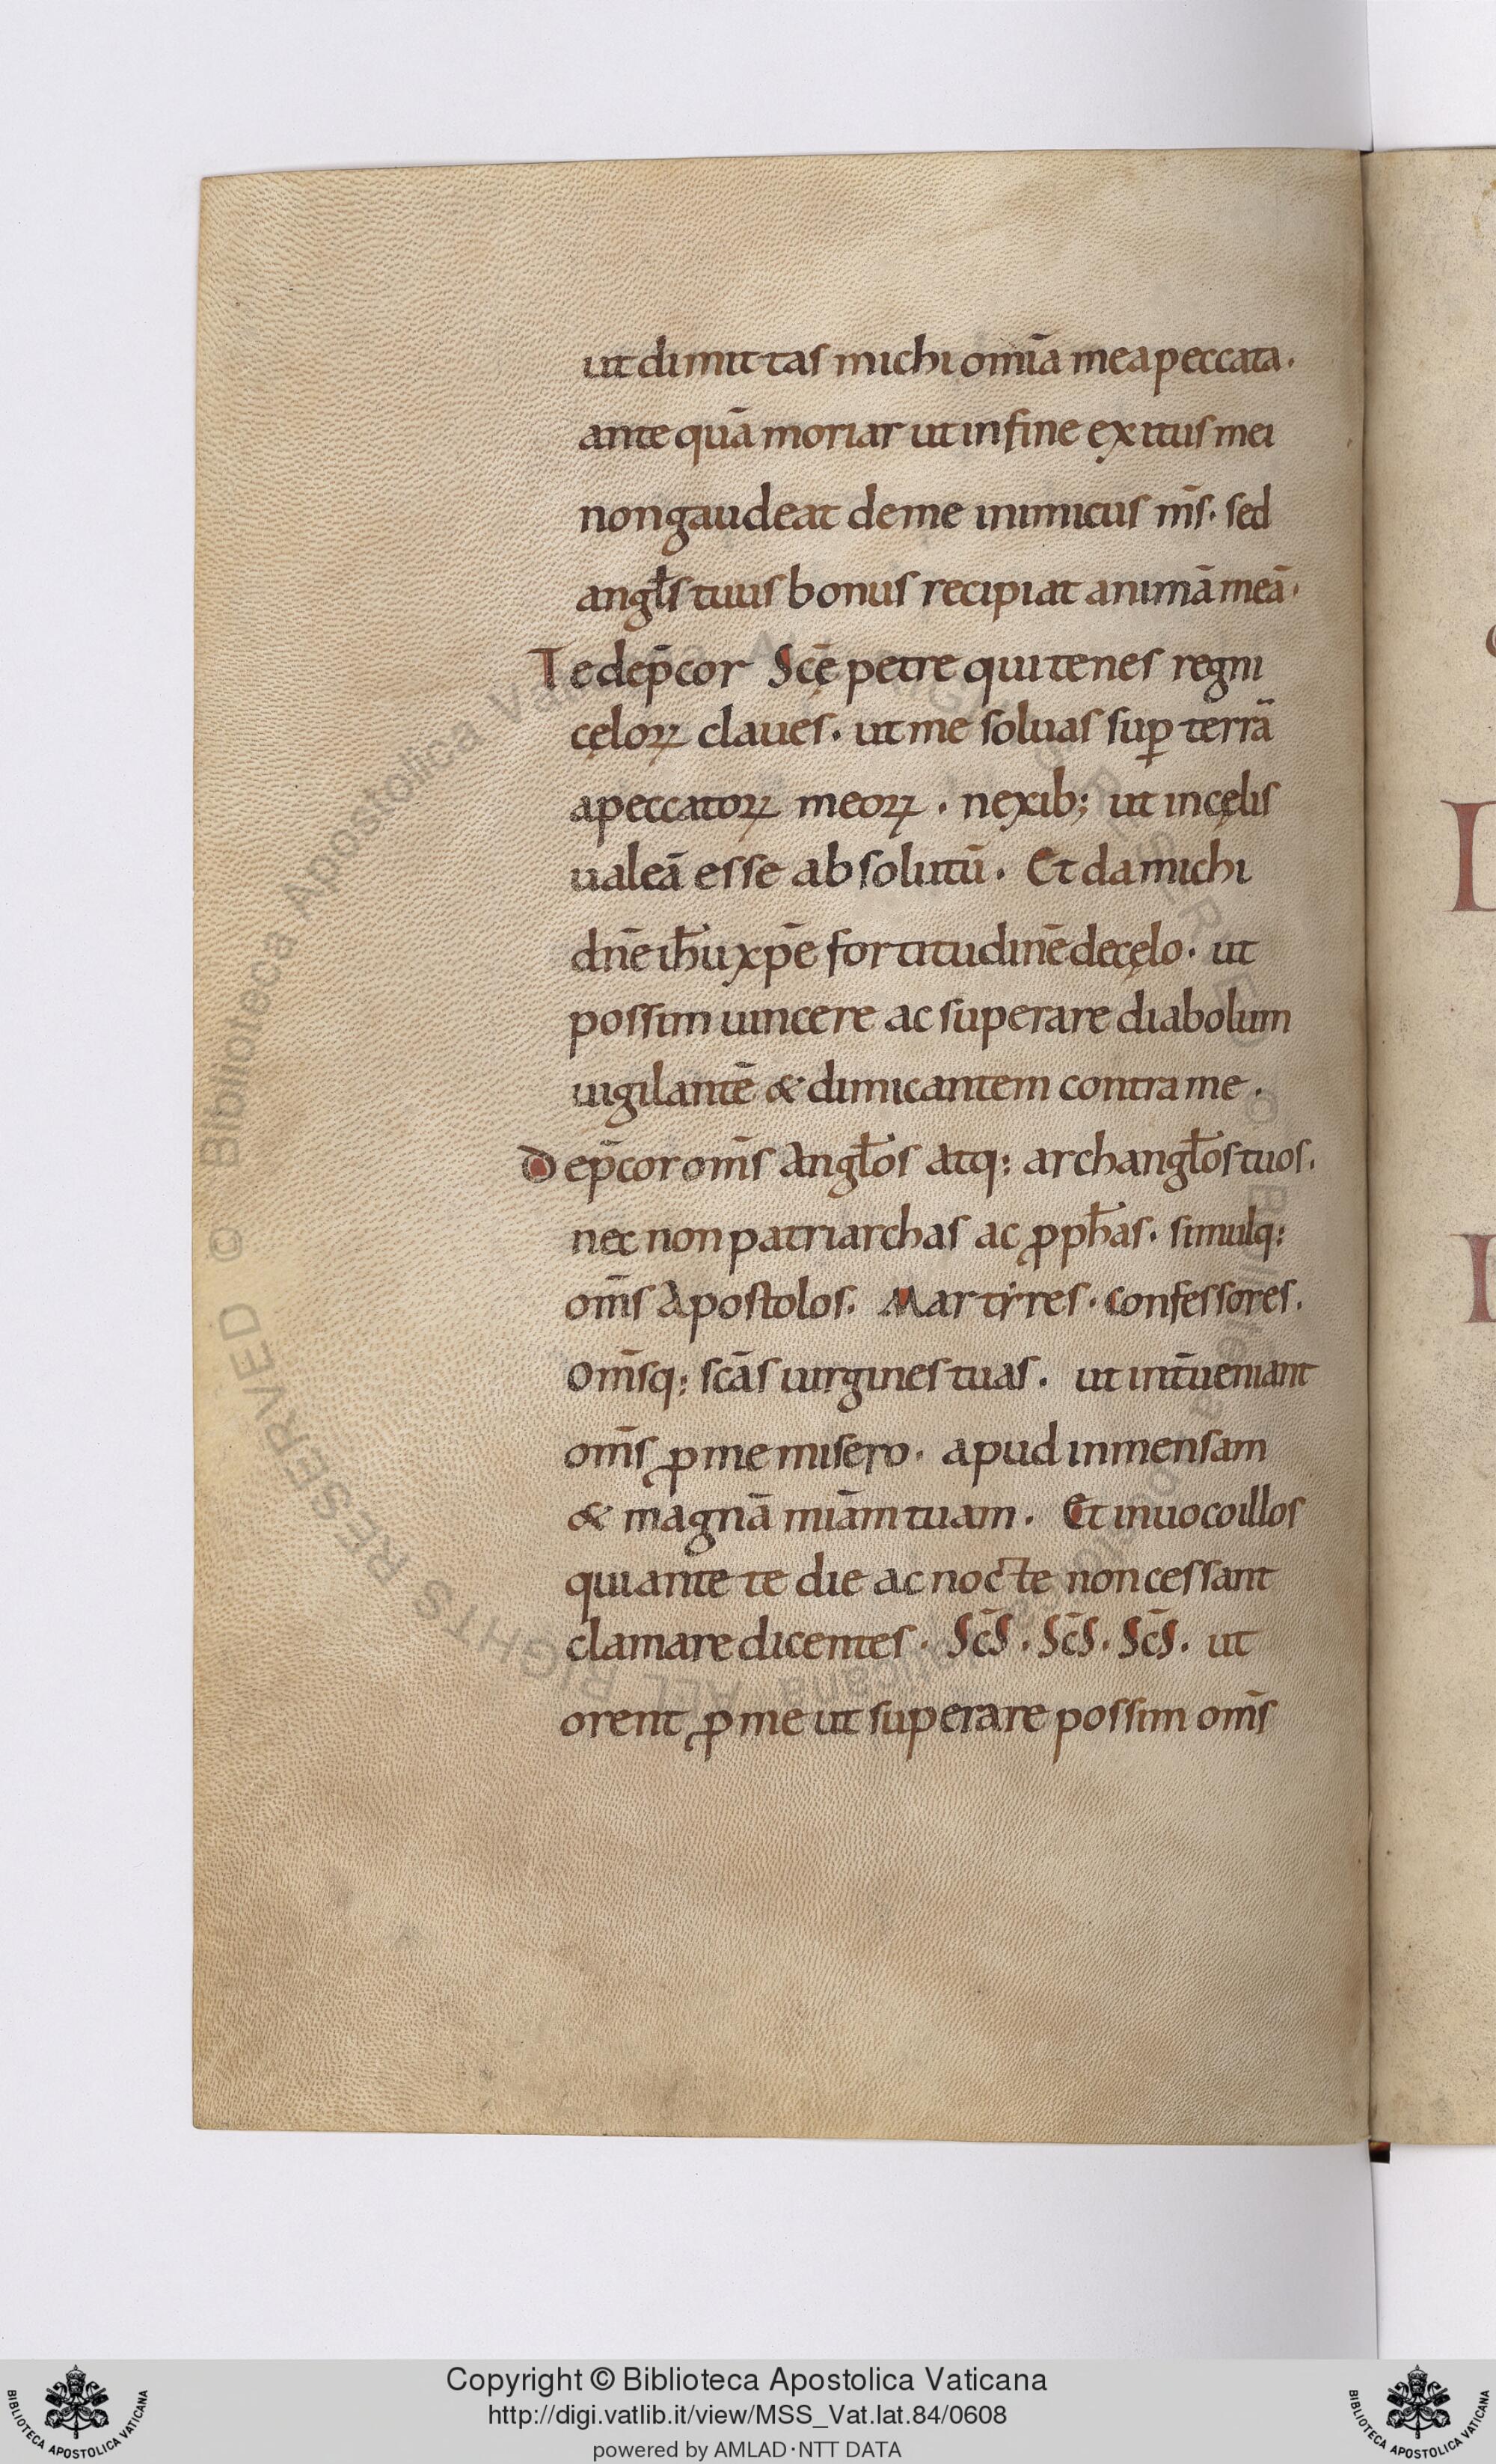 ut dimittas michi omīa mea peccata.
ante quā moriar ut in fine exitus mei
non gaudeat de me inimicus m̄s. sed
angl̄s tuus bonus recipiat animā meā.
Te dep̄cor Scē petre qui tenes regni
cęloꝝ claues. ut me soluas suꝑ terrā
a peccatoꝝ meoꝝ. nexib; ut in cęlis
ualeā esse absolutū. Et da michi
dn̄e ih̄u xp̄e fortitudinē de cęlo. ut
possim uincere ac superare diabolum
uigilantē & dimicantem contra me.
Dep̄cor om̄s Angl̄os Atq: archangl̄os tuos.
nec non patriarchas ac ꝓph̄as. simulq:
om̄s Apostolos. Martẏres. Confessores.
Om̄sq: scās uirgines tuas. ut int̄ueniant
om̄s ꝓ me misero. apud inmensam
& magnā miām tuam. Et inuoco illos
qui ante te die ac nocte non cessant
clamare dicentes. Sc̄s. Sc̄s. Sc̄s. ut
orent ꝓ me ut superare possim om̄s
Copyright © Biblioteca Apostolica Vaticana
http://digi.vatlib.it/view/MSS_Vat.lat.84/0608
powered by AMLAD·NTT DATA
BIBLIOTECA APOSTOLICA VATICANA
BIBLIOTECA APOSTOLICA VATICANA